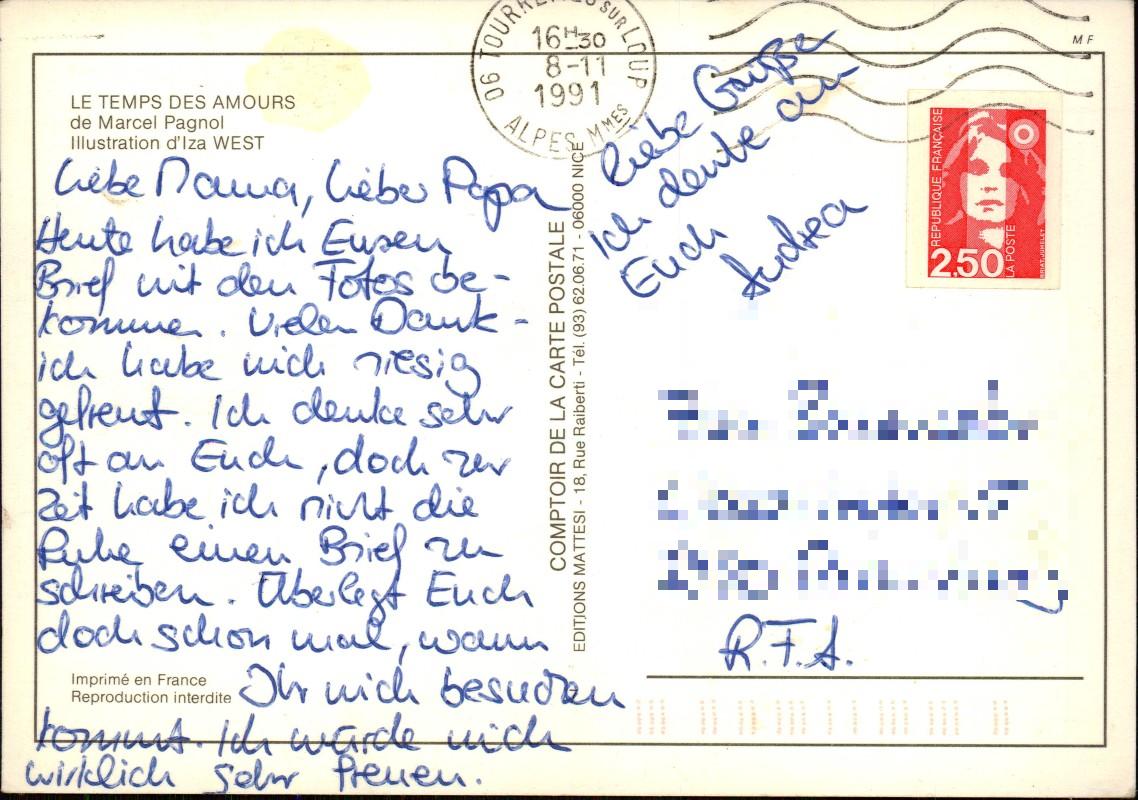 LE TEMPS DES AMOURS
de Marcel Pagnol
Illustration d'Iza WEST
Liebe Mama, lieber Papa
Heute habe ich Euren
Brief mit den Fotos be-
kommen. Vielen Dank -
ich habe mich riesig
gefreut. Ich denke sehr
oft an Euch, doch zur
Zeit habe ich nicht die
Ruhe einen Brief zu
schreiben. Überlegt Euch
doch schon mal, wann
Ihr mich besuchen
kommt. Ich würde mich
wirklich sehr freuen.
Liebe Grüße
Ich denke an
Euch
Andrea
Imprimé en France
Reproduction interdite
COMPTOIR DE LA CARTE POSTALE
EDITIONS MATTESI - 18, Rue Raiberti - Tél. (93) 62.06.71 - 06000 NICE
06 TOURRETTES SUR LOUP
16H30
8-11
1991
ALPES MMES
MF
REPUBLIQUE FRANÇAISE
2,50
LA POSTE
R.F.A.